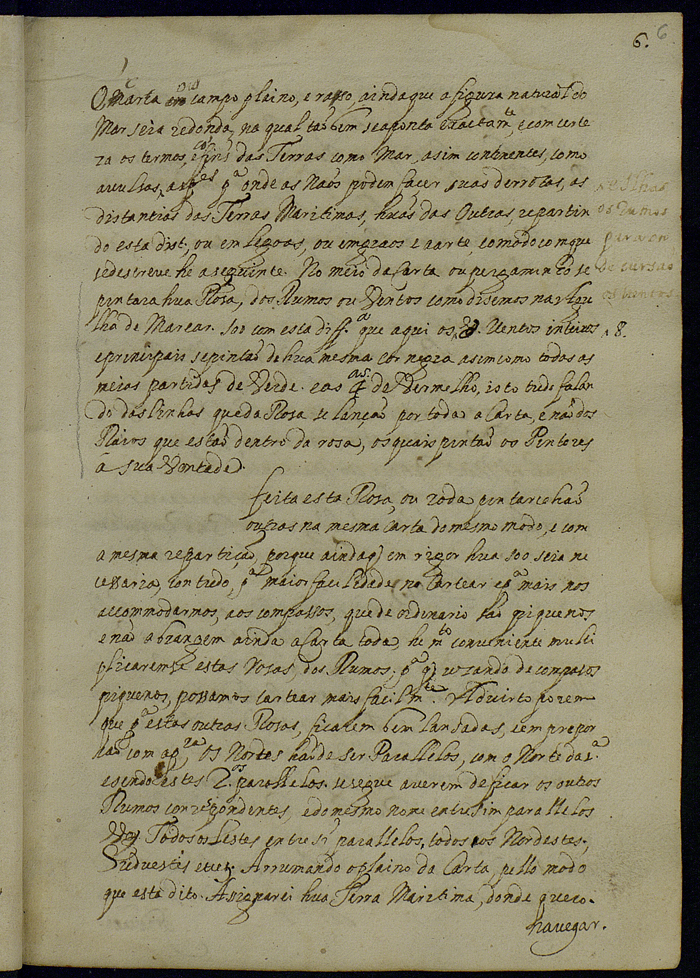 6. 6
O, Marta em campo plaino, e raso, ainda que a figura natural do
Mar seia redonda, na qual tão bem se aponta exactam.te, e com certe
za os termos, e fins das Terras como Mar, asim continentes, como
avulsas, e p.tes p.a onde as Naos podem faser suas derrotas, as
distantias das Terras Maritimas, huãs das Outras, repartin
do esta dist. ou em Legoas, ou em graos e a arte, comodo com que
se descreve he a seguinte. No meio da Carta ou pergaminho se
pintara hua Rosa, dos Rumos ou Ventos como disemos na Agu
lha de Marear. Soo com esta diff.a que aqui os 8. Ventos inteiros
e principais se pintão de hua mesma cor negra asim como todas as
meias partidas de Verde. e as 4.as de Vermelho, isto tudo falan
do das linhas que da Rosa se lanção por toda a Carta, e não dos
Raios que estão dentro da rosa, os quais pintão os Pintores
â sua Vontade.
feita esta Rosa, ou roda pintarse hão
outras na mesma Carta do mesmo modo, e com
a mesma repartição, porque ainda q em rigor hua soo seia ne
cessaria, contudo, p.a maior facilidade no Cartear e p.a mais nos
accommodarmos, aos compassos, que de ordinario são piquenos
e não abrangem ainda a Carta toda, he m.to conveniente multi
plicaremse estas rosas, dos Rumos, p.a q uzando de compasos
piquenos, possamos cartear mais facilm.te. Advirto porem
que p.a estas outras Rosas, ficarem bem lansadas, e em propor
hão com a pr.a os Nortes hão de ser Parallelos, com o Norte da 1.a
e sendo estes 2.os parallelos se segue averem de ficar os outros
Rumos correspondentes, e do mesmo nome entre sim parallelos
Todos os Lestes entre si parallelos, todos os Nordestes,
Suduestes etc. Arrumando o plaino da Carta, pello modo
que esta dito. Asignarei hua Terra Maritima, donde quero.
navegar.
as Ilhas
os Rumos
8.